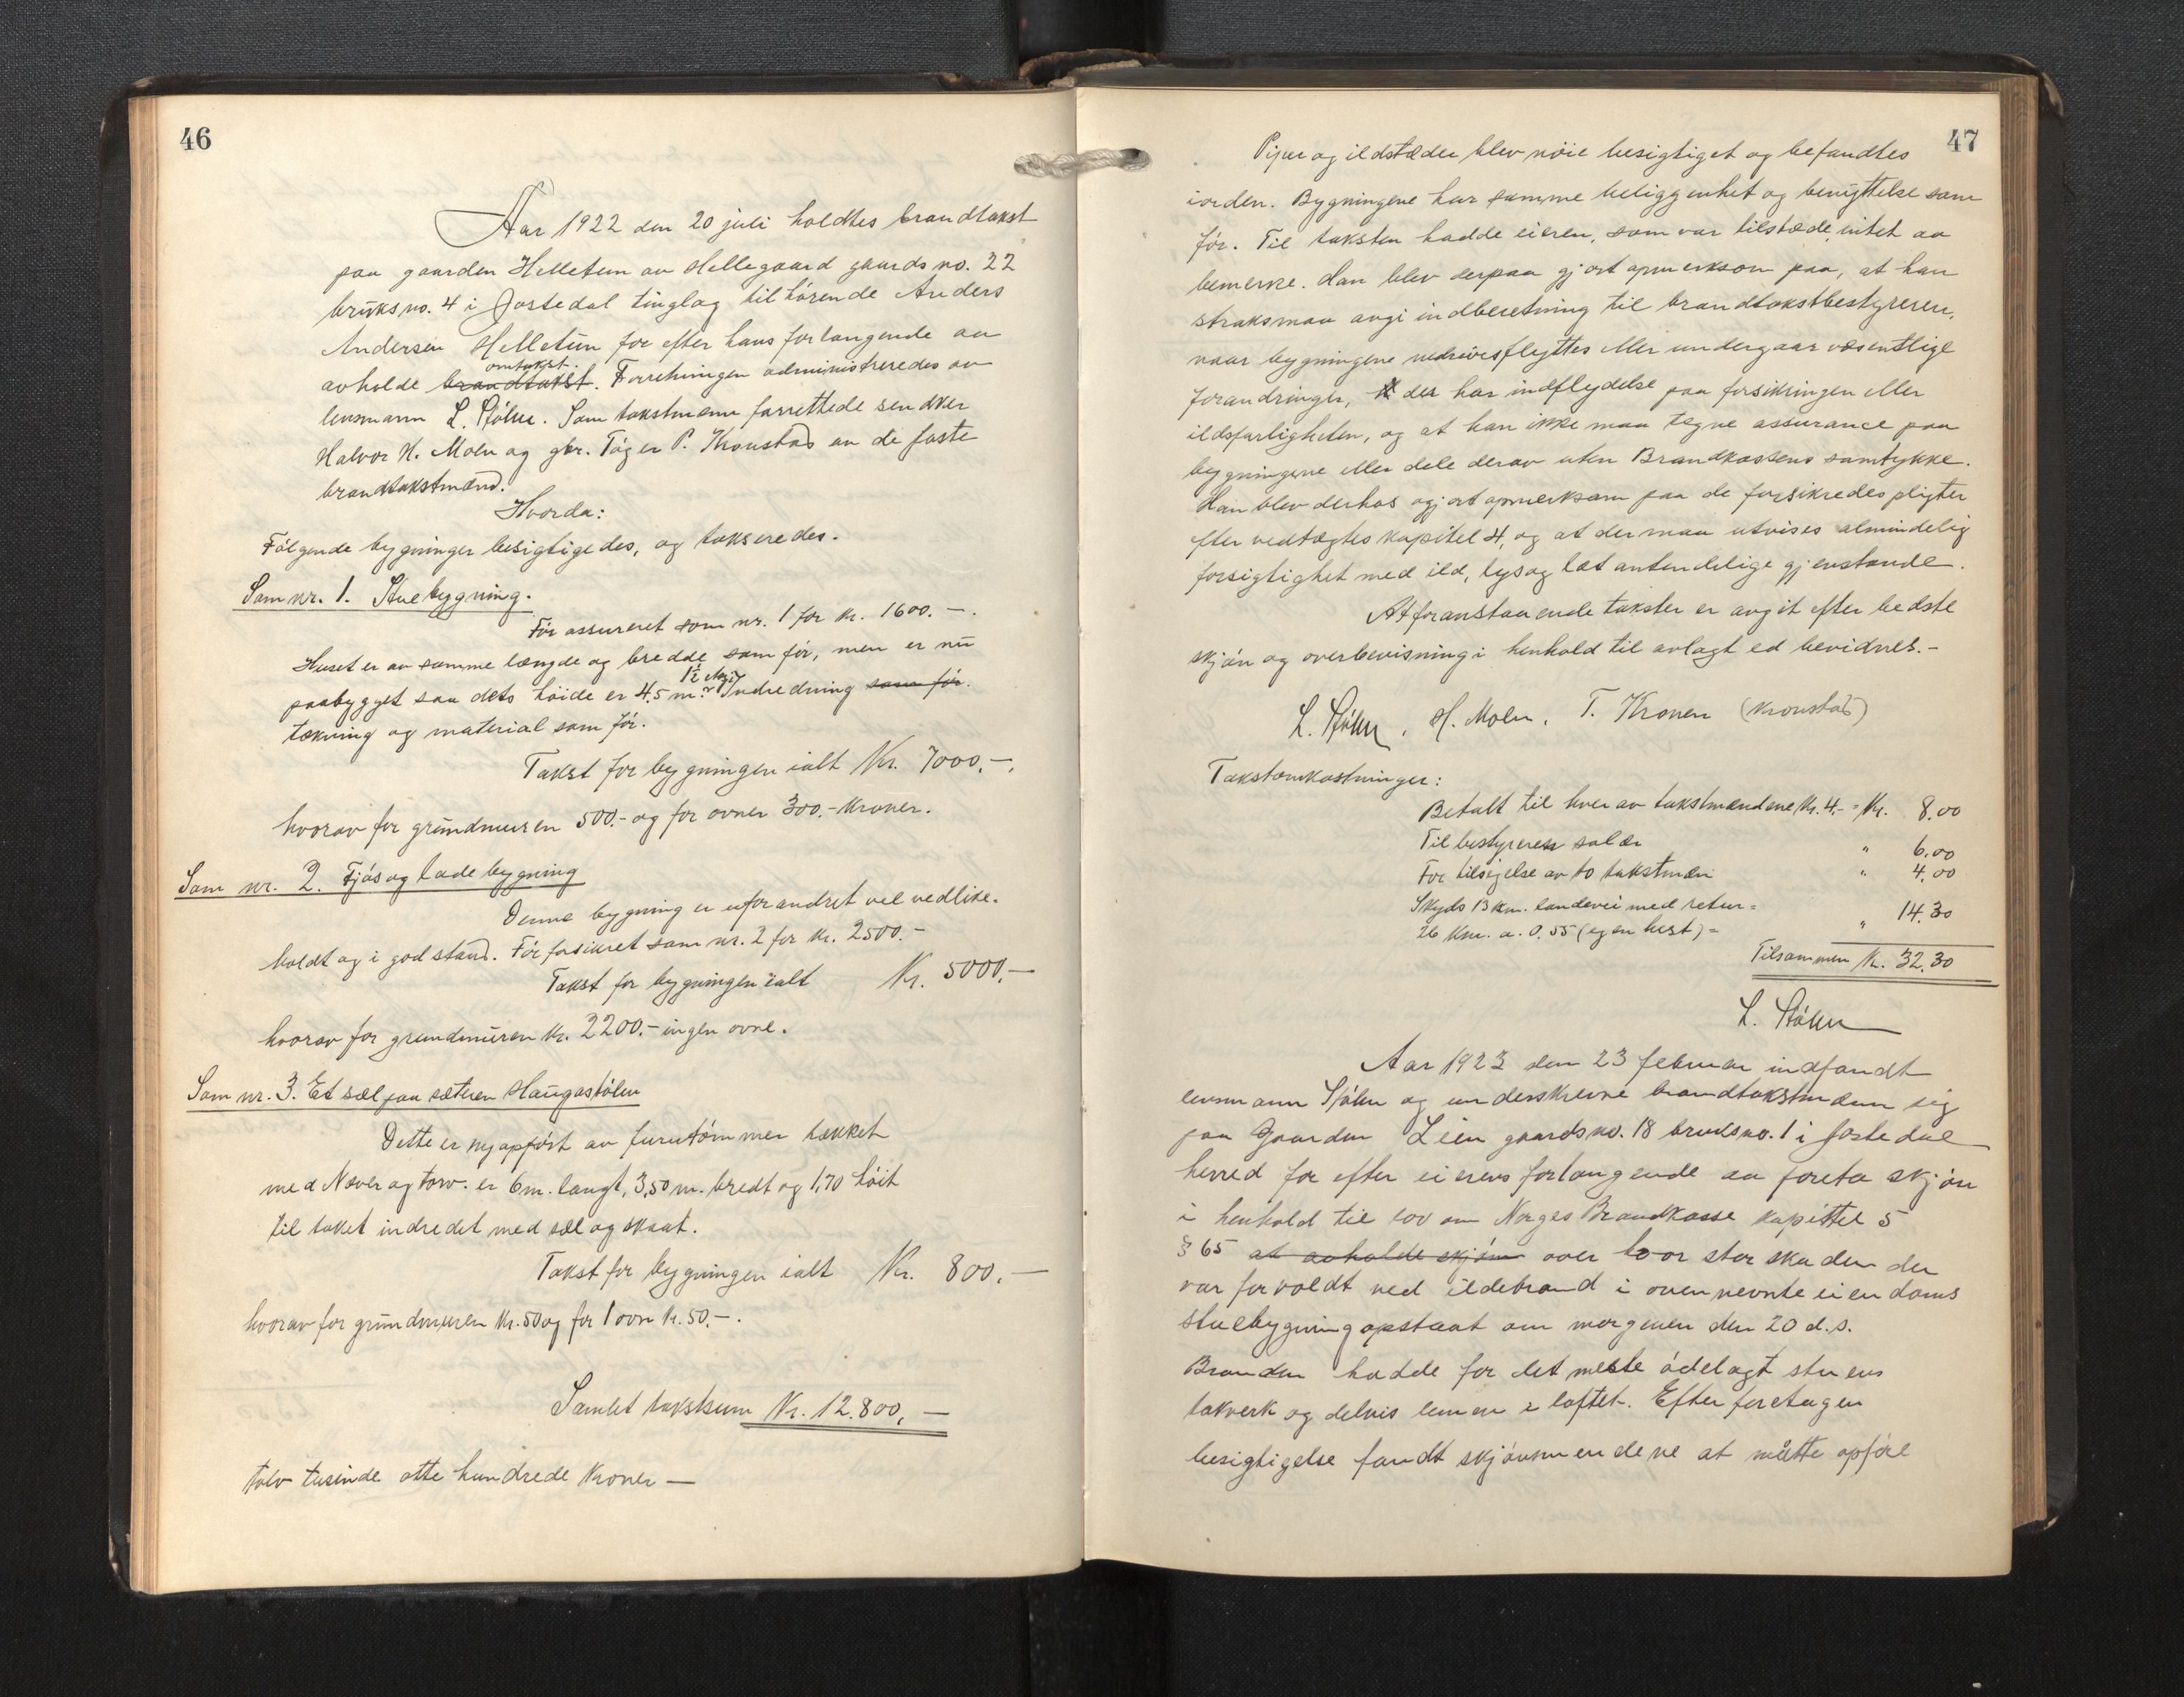 46
Aar 1922 den 20 juli holdtes brandtakst
paa gaarden Helletun av Hellegaard gaards no. 22
bruks no. 4 i Jostedal tinglag tilhörende Anders
Andersen Helletun for efter hans forlangende aa
omtakst.
avholde brandtakst. Forretningen administreredes av
lensmann L. Stölen. Som takstmenn forrettede
Halvor H. Moln og gbr. Töger P. Kronstad av de faste
brandtakstmænd.
Hvorda:
Fölgende bygninger besigtigedes, og takseredes.
Som nr. 1. Stuebygning.
För assureret som nr. 1 for kr. 1600.—.
Huset er av samme længde og bredde som för, men er nu
paabygget saa dets höide er 4,5 m. Indredning som för.
tækning og material som för.
Takst for bygningen ialt Kr. 7000.—.
hvorav for grundmuren 500.- og for ovner 300.- Kroner.
Som nr. 2. Fjös og ladebygning
Denne bygning er uforandret vel vedlike-
holdt og i god stand. För forsikret som nr. 2 for Kr. 2500.—
Takst for bygningen ialt Kr. 5000,—
hvorav for grundmuren Kr. 2200.- ingen ovne.
Som nr. 3. Et sæl paa sæteren Haugastölen
Dette er nyopfört av furutömmer tækket
med Næver og torv. er 6 m. langt, 3,50 m. bredt og 1,70 höit
til taket indredet med sæl og skaat.
Takst for bygningen ialt Kr. 800.—
hvorav for grundmuren Kr. 50 og for 1 ovn Kr. 50.—.
Samlet takstsum Kr. 12.800,—
tolv tusinde otte hundrede Kroner —
47
Piper og ildstæder blev nöie besigtiget og befandtes
iorden. Bygningene har samme beliggenhet og benyttelse som
för. Til taksten hadde eieren, som var tilstæde, intet aa
bemerke. Han blev derpaa gjort opmerksom paa, at han
straks maa avgi indberetning til brandtakstbestyreren,
naar bygningene nedrives flyttes eller undergaar væsentlige
forandringer, der har indflydelse paa forsikringen eller
ildsfarligheten, og at han ikke maa tegne assurance paa
bygningene eller dele derav uten Brandkassens samtykke.
Han blev derhos gjort opmerksom paa de forsikredes pligter
efter vedtægtes kapitel 4, og at der maa utvises almindelig
forsigtighet med ild, lys og let antendelige gjenstande.
At foranstaaende takster er avgit efter bedste
skjön og overbevisning i henhold til avlagt ed bevidnes.-
L. Stölen, H. Moln, T. Kronen (Kronstad)
Takstomkostninger:
Betalt til hver av takstmændene Kr. 4.- = Kr. 8.00
Til bestyreren salær " 6.00
For tilsigelse av to takstmæn " 4.00
Skyds 13 km. landevei med retur =
26 Km. a. 0.55 (egen hest) = " 14.30
Tilsammen Kr. 32.30
L. Stölen
Aar 1923 den 23 februar indfandt
lensmann Stölen og underskrevne brandtakstmænn sig
paa Gaarden Leien gaards no. 18 bruks no. 1 i Jostedal
herred for efter eierens forlangende aa foreta skjön
i henhold til lov om Norges Brandkasse kapittel 5
§ 65 at avholde skjön over hvor stor skaden der
var forvoldt ved ildebrand i ovennevnte eiendoms
stuebygning opstaat om morgenen den 20 d.s.
Branden hadde for det meste ödelagt stuens
takverk og delvis lemen i loftet. Efter foretagen
besigtigelse fandt skjönnmendene at måtte opföre